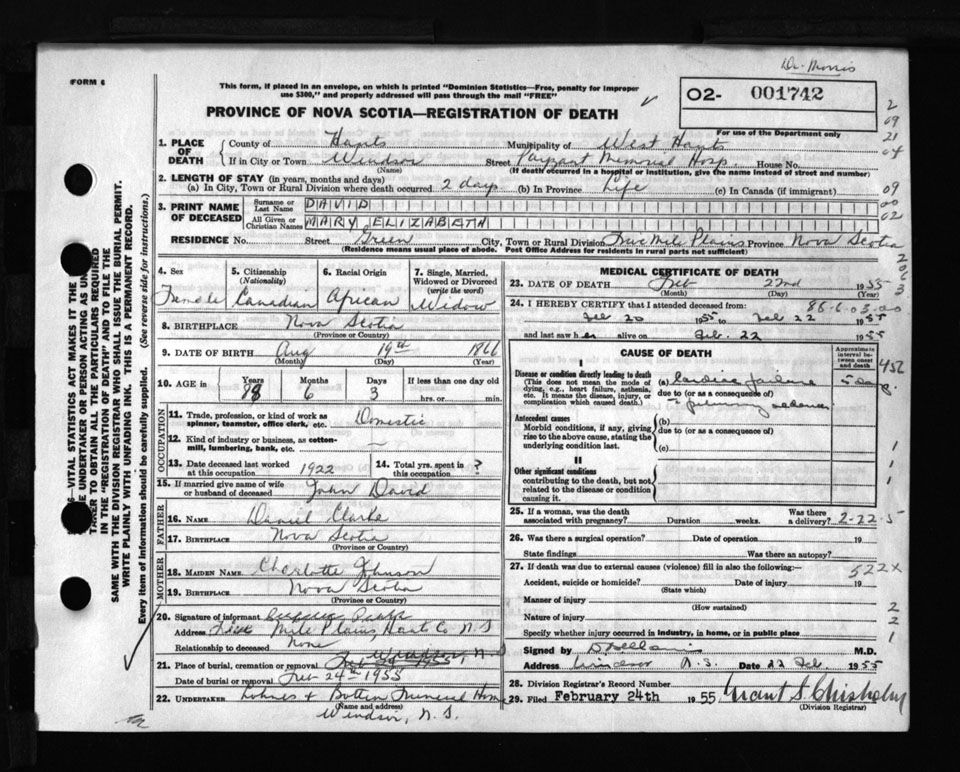 Dr. Morris
FORM 6
This form, if placed in an envelope, on which is printed "Dominion Statistics—Free, penalty for improper
use $300," and properly addressed will pass through the mail "FREE"
02- 001742
PROVINCE OF NOVA SCOTIA—REGISTRATION OF DEATH
For use of the Department only
1. PLACE OF DEATH
County of Hants Municipality of West Hants
If in City or Town Windsor Street Payzant Memorial Hosp. House No.
(Name) (If death occurred in a hospital or institution, give the name instead of street and number)
2. LENGTH OF STAY (in years, months and days)
(a) In City, Town or Rural Division where death occurred 2 days (b) In Province Life (c) In Canada (if immigrant)
3. PRINT NAME OF DECEASED
Surname or Last Name DAVID
All Given or Christian Names MARY ELIZABETH
RESIDENCE No. Street Green City, Town or Rural Division Five Mile Plains Province Nova Scotia
(Residence means usual place of abode. Post Office Address for residents in rural parts not sufficient)
4. Sex Female
5. Citizenship (Nationality) Canadian
6. Racial Origin African
7. Single, Married, Widowed or Divorced (write the word) Widow
8. BIRTHPLACE Nova Scotia
(Province or Country)
9. DATE OF BIRTH Aug 19th 1866
(Month) (Day) (Year)
10. AGE in Years 88 Months 6 Days 3 If less than one day old
hrs. or min.
OCCUPATION
11. Trade, profession, or kind of work as
spinner, teamster, office clerk, etc. Domestic
12. Kind of industry or business, as cotton-
mill, lumbering, bank, etc. —
13. Date deceased last worked
at this occupation 1922
14. Total yrs. spent in
this occupation ?
15. If married give name of wife
or husband of deceased John David
FATHER
16. NAME Daniel Clarke
17. BIRTHPLACE Nova Scotia
(Province or Country)
MOTHER
18. MAIDEN NAME Charlotte Johnson
19. BIRTHPLACE Nova Scotia
(Province or Country)
20. Signature of informant
Address Five Mile Plains Hants Co N.S
Relationship to deceased None
21. Place of burial, cremation or removal Windsor, N.S
Date of burial or removal Feb 24th 1955
22. UNDERTAKER Lohnes + Botten Funeral Home
(Name and address)
Windsor, N.S.
MEDICAL CERTIFICATE OF DEATH
23. DATE OF DEATH Feb 22nd 1955
(Month) (Day) (Year)
24. I HEREBY CERTIFY that I attended deceased from: 88-6-03-00
Feb 20 1955 to Feb 22 1955
and last saw her alive on Feb. 22 1955
CAUSE OF DEATH
Approximate interval between onset and death
I
Disease or condition directly leading to death
(This does not mean the mode of
dying, e.g., heart failure, asthenia,
etc. It means the disease, injury, or
complication which caused death.)
(a) Cardiac failure 5 days
due to (or as a consequence of)
Antecedent causes
Morbid conditions, if any, giving
rise to the above cause, stating the
underlying condition last.
(b)
due to (or as a consequence of)
(c)
II
Other significant conditions
contributing to the death, but not
related to the disease or condition
causing it.
25. If a woman, was the death
associated with pregnancy? Duration weeks. Was there
a delivery? 2-22-5
26. Was there a surgical operation? Date of operation 19
State findings Was there an autopsy?
27. If death was due to external causes (violence) fill in also the following:— 522X
Accident, suicide or homicide? Date of injury 19
(State which)
Manner of injury
(How sustained)
Nature of injury
Specify whether injury occurred in industry, in home, or in public place
Signed by M.D.
Address Windsor N.S. Date 22 Feb. 1955
28. Division Registrar's Record Number
29. Filed February 24th 1955 Grant S. Chisholm
(Division Registrar)
2
09
21
04
09
00
02
2
0
6
3
1
1
1
2
2
1
VITAL STATISTICS ACT MAKES IT THE
UNDERTAKER OR PERSON ACTING AS
TAKER TO OBTAIN ALL THE PARTICULARS REQUIRED
IN THE "REGISTRATION OF DEATH" AND TO FILE THE
SAME WITH THE DIVISION REGISTRAR WHO SHALL ISSUE THE BURIAL PERMIT.
WRITE PLAINLY WITH UNFADING INK. THIS IS A PERMANENT RECORD.
Every item of information should be carefully supplied. (See reverse side for instructions.)